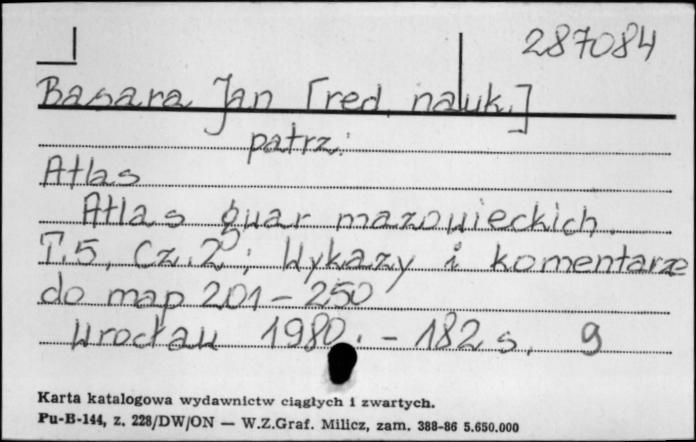 287084
Basara Jan [red. nauk.]
patrz:
Atlas
Atlas gwar mazowieckich.
T.5, Cz.2; Wykazy i komentarze
do map 201-250
Wrocław 1980. - 182 s. 9
Karta katalogowa wydawnictw ciągłych i zwartych.
Pu-B-144, z. 228/DW/ON — W.Z.Graf. Milicz, zam. 388-86 5.650.000